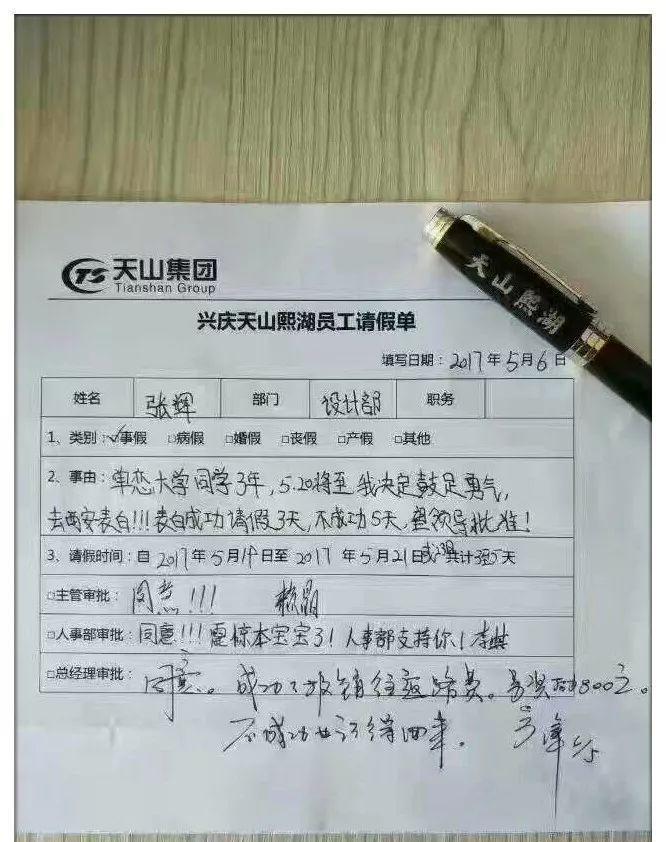 天山集团
Tianshan Group
天山熙湖
兴庆天山熙湖员工请假单
填写日期：2017年5月6日
姓名 张辉 部门 设计部 职务
1、类别：✓事假 □病假 □婚假 □丧假 □产假 □其他
2、事由：单恋大学同学3年，5.20将至 我决定鼓足勇气，
去西安表白!!!表白成功请假3天，不成功5天，望领导批准！
3、请假时间：自2017年5月19日至2017年5月21日 共计3 5天
□主管审批：同意!!!
□人事部审批：同意!!!震惊本宝宝了！人事部支持你！李
□总经理审批：同意。成功了报销往返路费。另奖 800元。
不成功也记得回来。